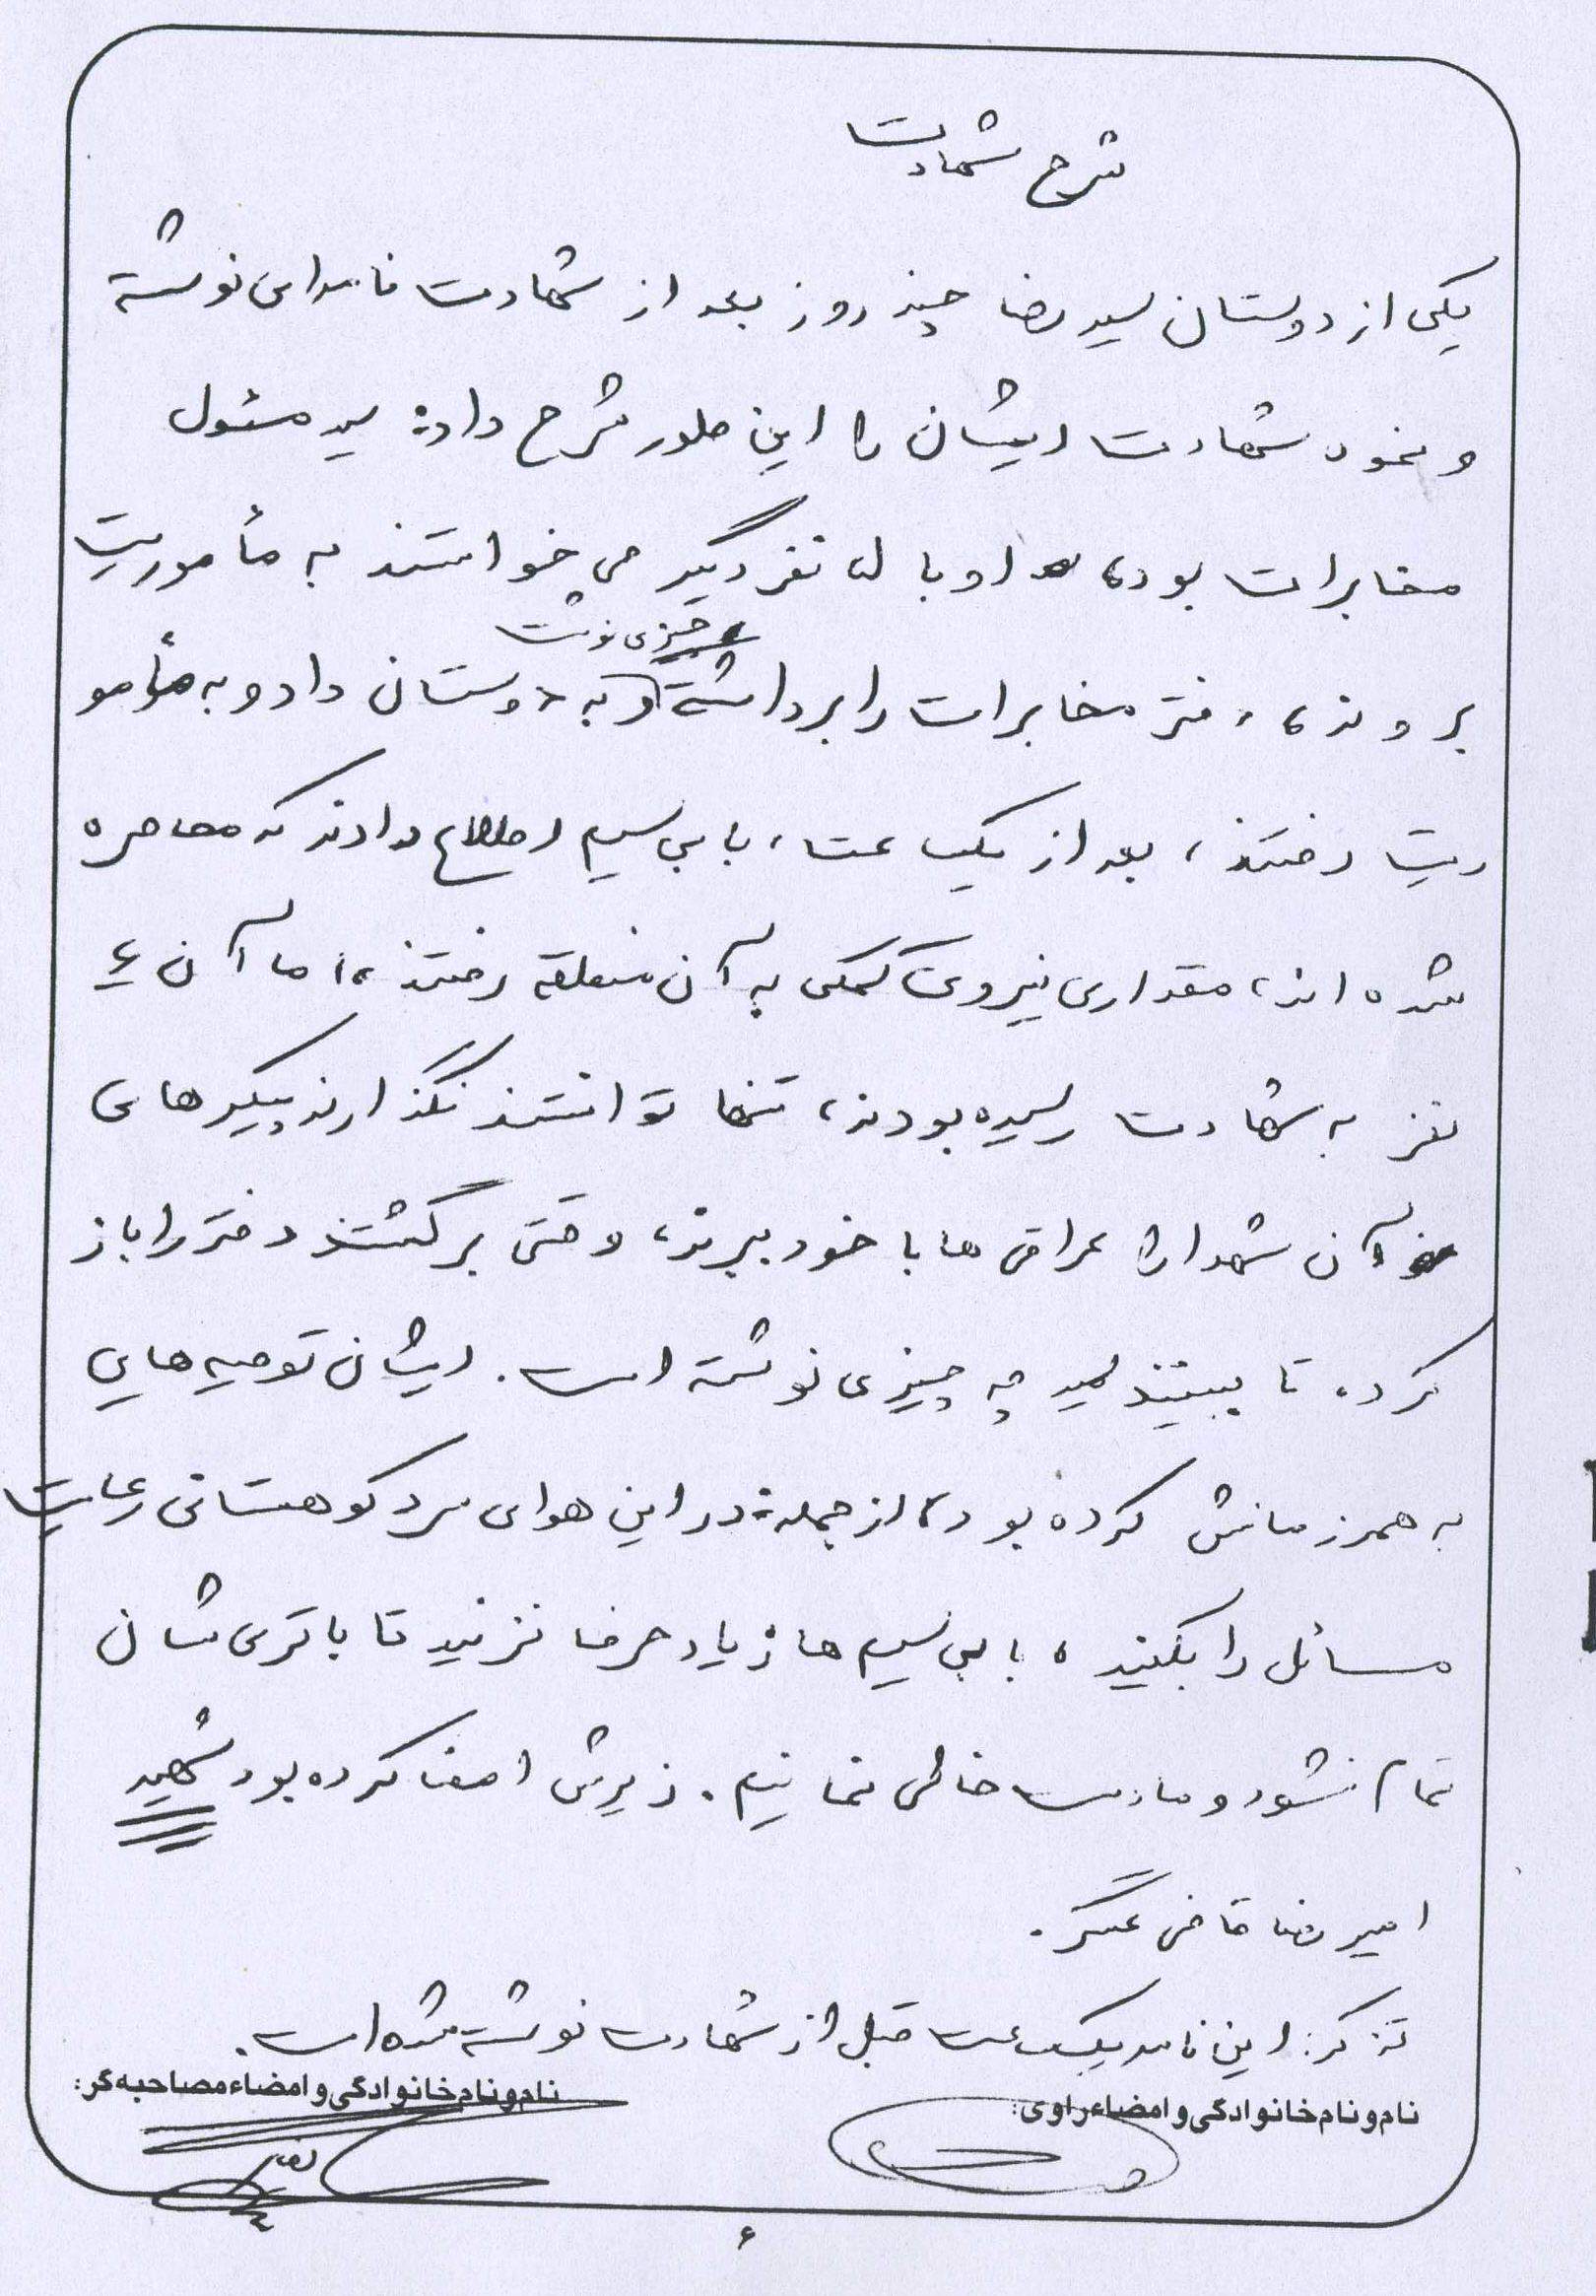 شرح شهادت
یکی از دوستان سید رضا چند روز بعد از شهادت نامه‌ای نوشته
و نحوه شهادت ایشان را این طور شرح داده: سید مسئول
مخابرات بود، او با نفر دیگر می خواستند به مأموریت
بروند، دفتر مخابرات را برداشته چیزی نوشت و به دوستان داد و به مأمو
ریت رفتند، بعد از یکساعت، با بی سیم اطلاع دادند که محاصره
شده اند، مقداری نیروی کمکی به آن منطقه رفتند، اما آن ۶
نفر به شهادت رسیده بودند، تنها توانستند نگذارند پیکرهای
آن شهدا را عراقی ها با خود ببرند، وقتی برگشتند دفتر را باز
کرده تا ببینند سید چه چیزی نوشته است. ایشان توصیه هایی
به همرزمانش کرده بود، از جمله: در این هوای سرد کوهستانی رعایت
مسائل را بکنید، با بی سیم ها زیاد حرف نزنید تا باتری شان
تمام نشود و ما دست خالی نمانیم. زیرش امضا کرده بود شهید
امیررضا قاضی عسگر.
تذکر: این نامه یکساعت قبل از شهادت نوشته شده است.
نام و نام خانوادگی و امضاء راوی:
نام و نام خانوادگی و امضاء مصاحبه گر:
۶